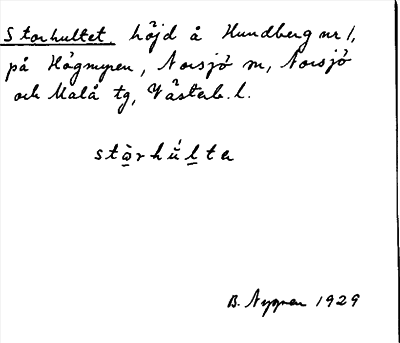 Storhultet, höjd å Hundberg nr 1,
på Högmyren, Norsjö sn, Norsjö
och Malå tg, Västerb. l.
stò̱rhǘḻta
B. Nygren 1929